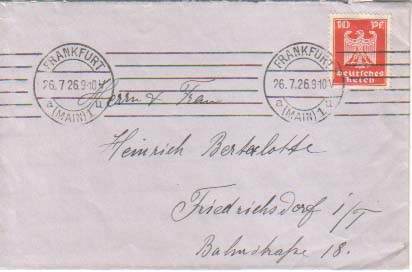 10 Pf
Deutsches
Reich
FRANKFURT
26.7.26.9-10V
a (MAIN) 1 u
FRANKFURT
26.7.26.9-10V
a (MAIN) 1 u
Herrn & Frau
Heinrich Bertelotte
Friedrichsdorf i/T
Bahnstraße 18.